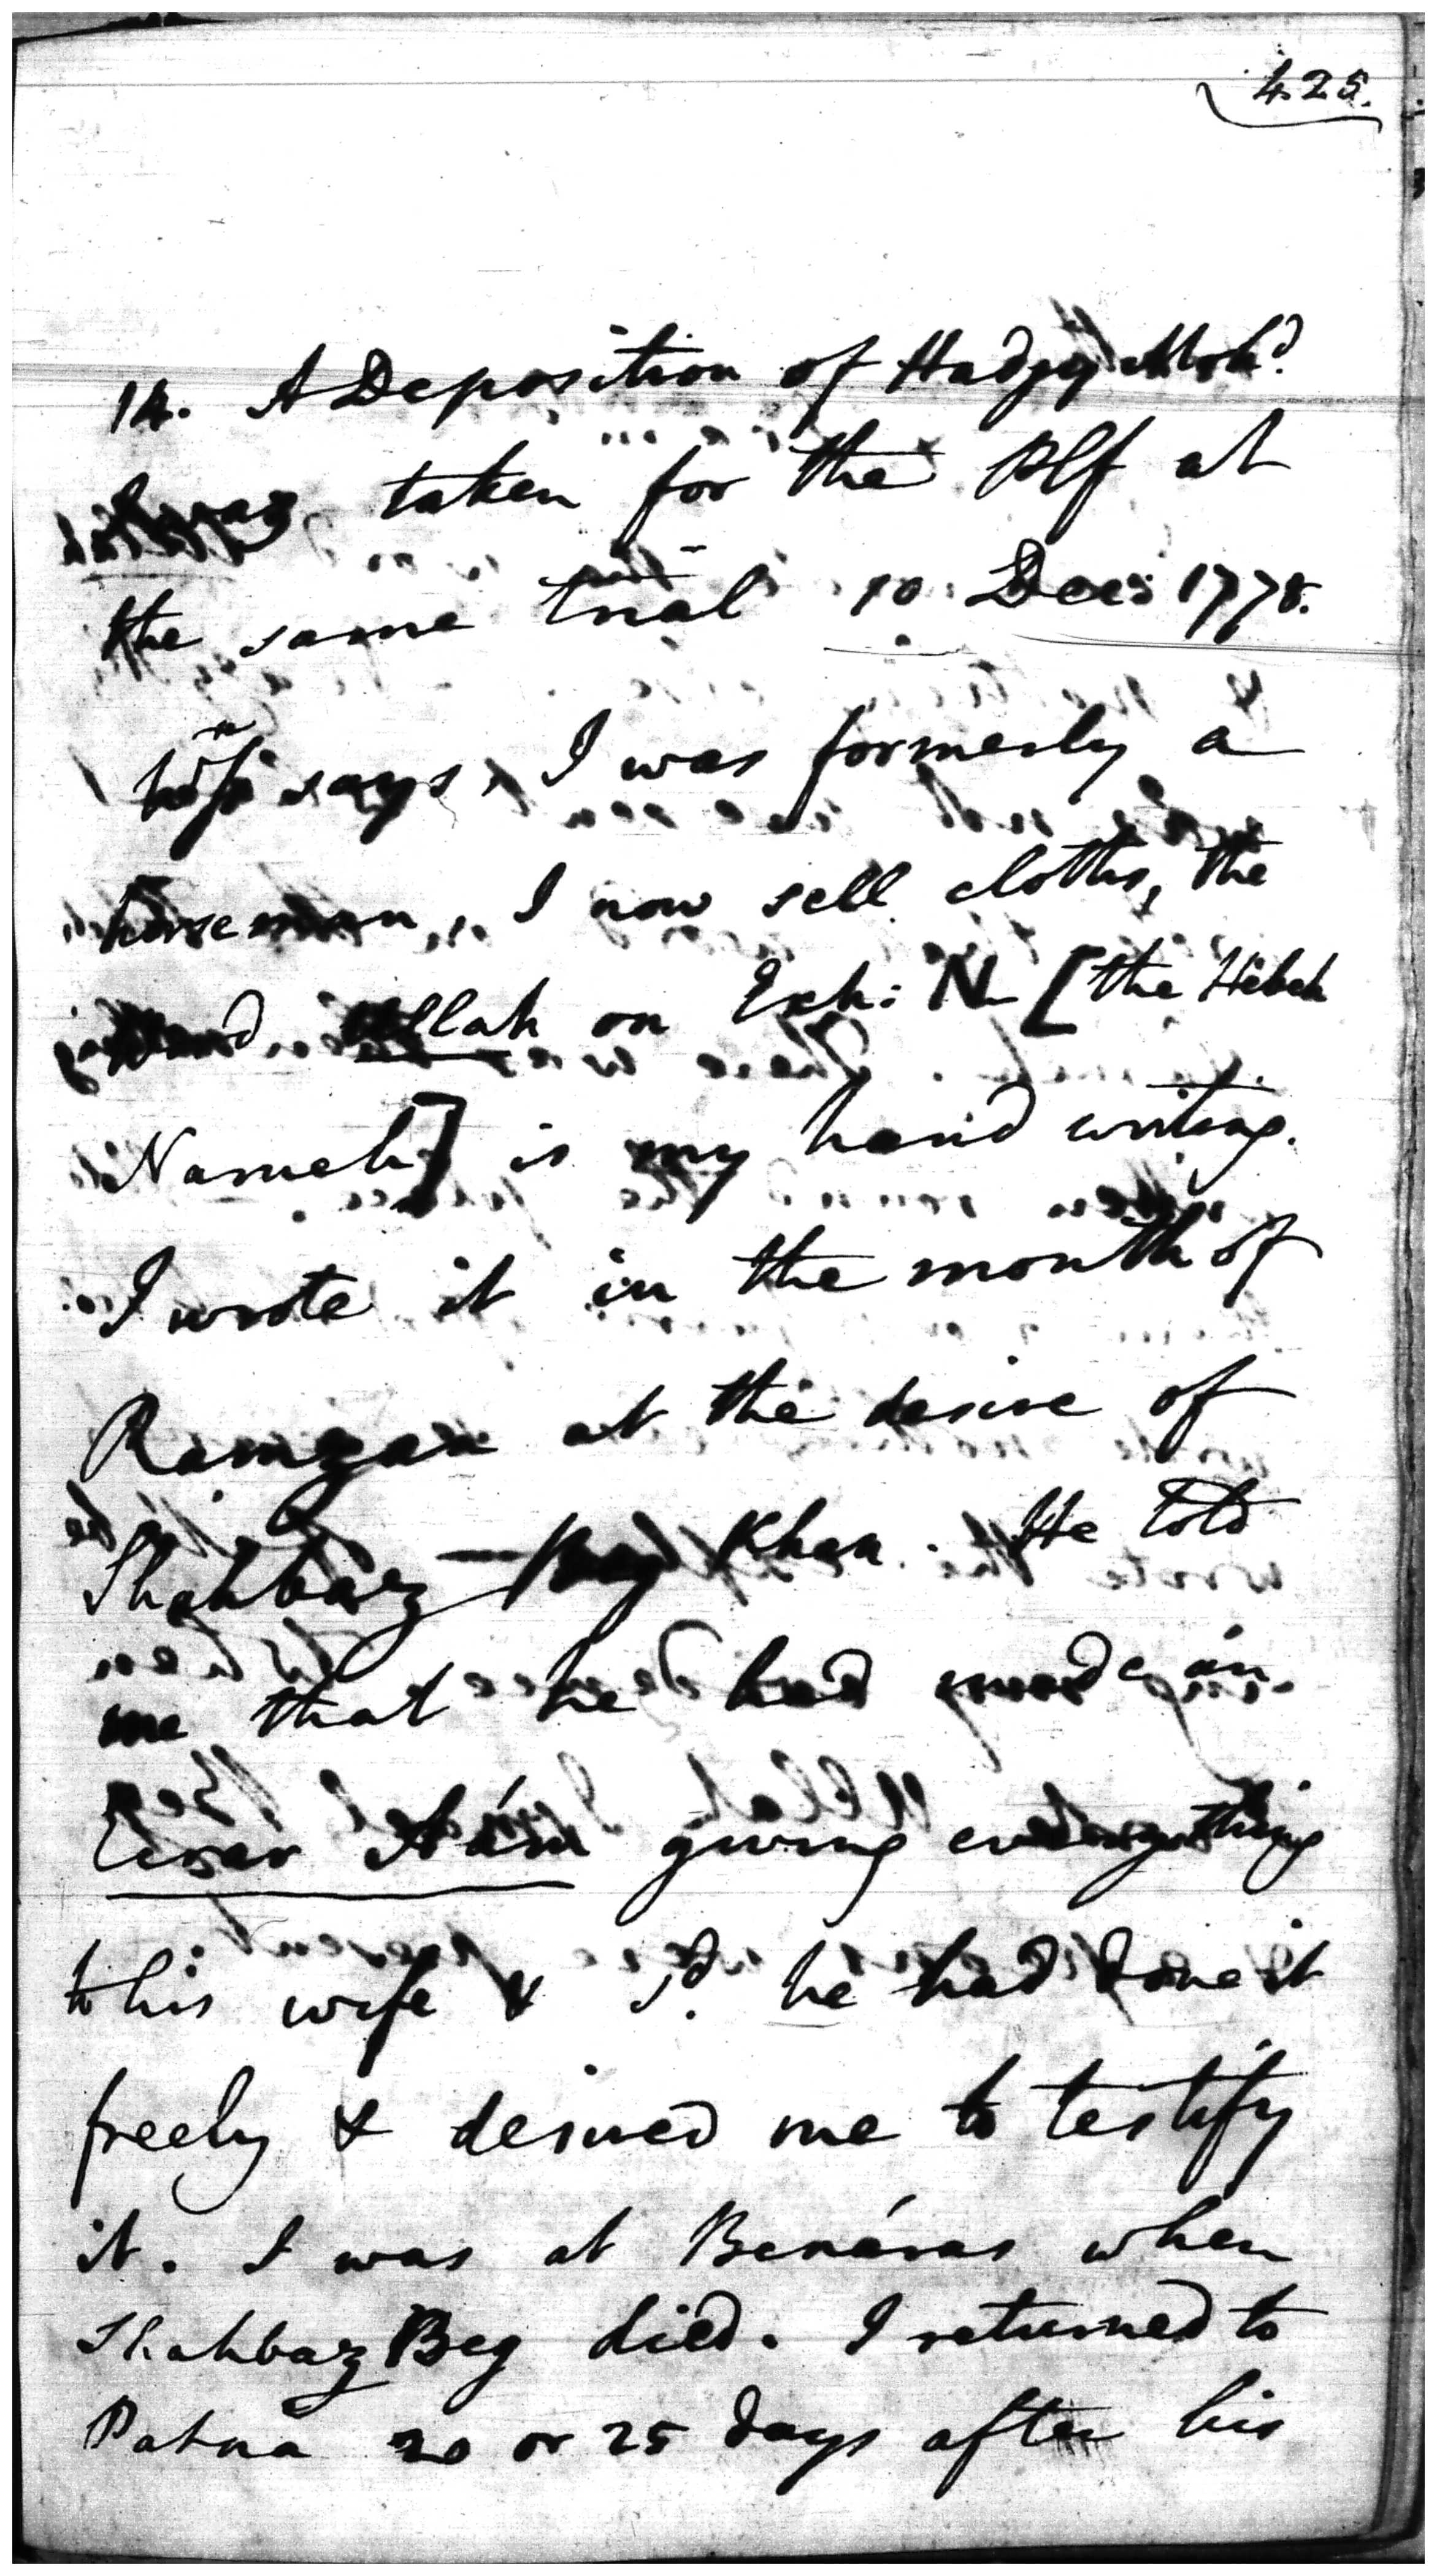 425.
14. A Deposition of Hadjy Moh.d
taken for the Plf at
the same trial 10 Decr 1778.
says, I was formerly a
horseman, I now sell cloths, the
word Ullah on Exh: N [the Hebeh
Nameh] is my hand writing.
I wrote it in the month of
Ramzan at the desire of
Shahbaz Beg Khan. He told
me that he had made an
Ecrar Aám giving everything
to his wife & sd. he had done it
freely & desired me to testify
it. I was at Benáras when
Shahbaz Beg died. I returned to
Patna 20 or 25 days after his